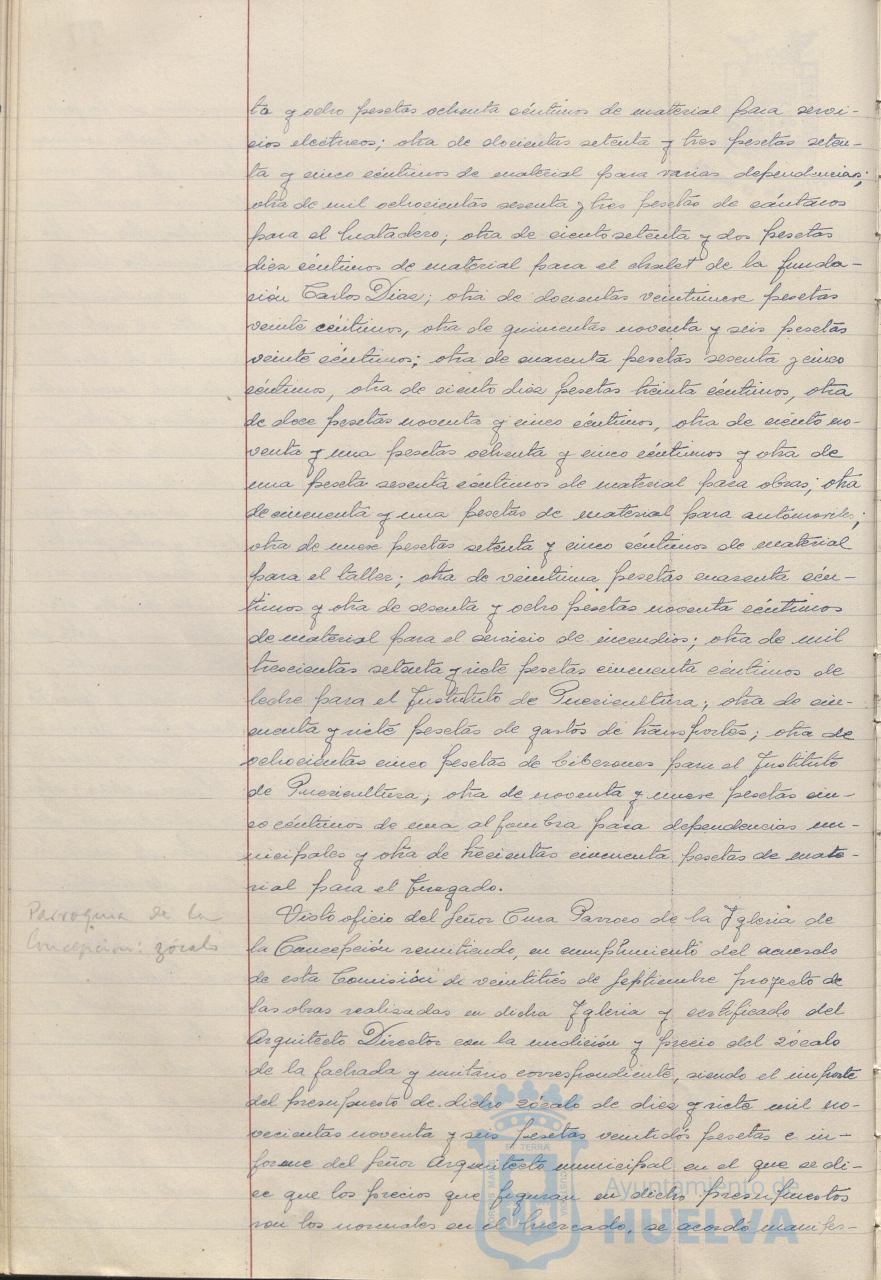 ta y ocho pesetas ochenta céntimos de material para servi-
cios electricos; otra de docientas setenta y tres pesetas seten-
ta y cinco céntimos de material para varias dependencias;
otra de mil ochocientas sesenta y tres pesetas de cántaros
para el Matadero; otra de ciento setenta y dos pesetas
diez céntimos de material para el chalet de la funda-
ción Carlos Diaz; otra de docientas veintinueve pesetas
veinte céntimos, otra de quinientas noventa y seis pesetas
veinte céntimos; otra de cuarenta pesetas sesenta y cinco
céntimos, otra de ciento diez pesetas treinta céntimos, otra
de doce pesetas noventa y cinco céntimos, otra de ciento no-
venta y una pesetas ochenta y cinco céntimos y otra de
una peseta sesenta céntimos de material para obras; otra
de cincuenta y una pesetas de material para automoviles;
otra de nueve pesetas setenta y cinco céntimos de material
para el taller; otra de veintiuna pesetas cuarenta cén-
timos y otra de sesenta y ocho pesetas noventa céntimos
de material para el servicio de incendios; otra de mil
trescientas setenta y siete pesetas cincuenta céntimos de
leche para el Instituto de Puericultura; otra de cin-
cuenta y siete pesetas de gastos de transportes; otra de
ochocientas cinco pesetas de biberones para el Instituto
de Puericultura; otra de noventa y nueve pesetas cin-
co céntimos de una alfombra para dependencias mu-
nicipales y otra de trecientas cincuenta pesetas de mate-
rial para el Juzgado.
Parroquia de la
Concepcion: zócalo
Visto oficio del Señor Cura Parroco de la Iglesia de
la Concepción remitiendo, en cumplimiento del acuerdo
de esta Comisión de veintitrés de Septiembre proyecto de
las obras realizadas en dicha Iglesia y certificado del
Arquitecto Director con la medición y precio del zócalo
de la fachada y unitario correspondiente, siendo el importe
del presupuesto de dicho zócalo de diez y siete mil no-
vecientas noventa y seis pesetas ventidós pesetas e in-
forme del Señor Arquitecto municipal en el que se di-
ce que los precios que figuran en dicho presupuestos
son los normales en el mercado, se acordó manifes-
Ayuntamiento de
HUELVA